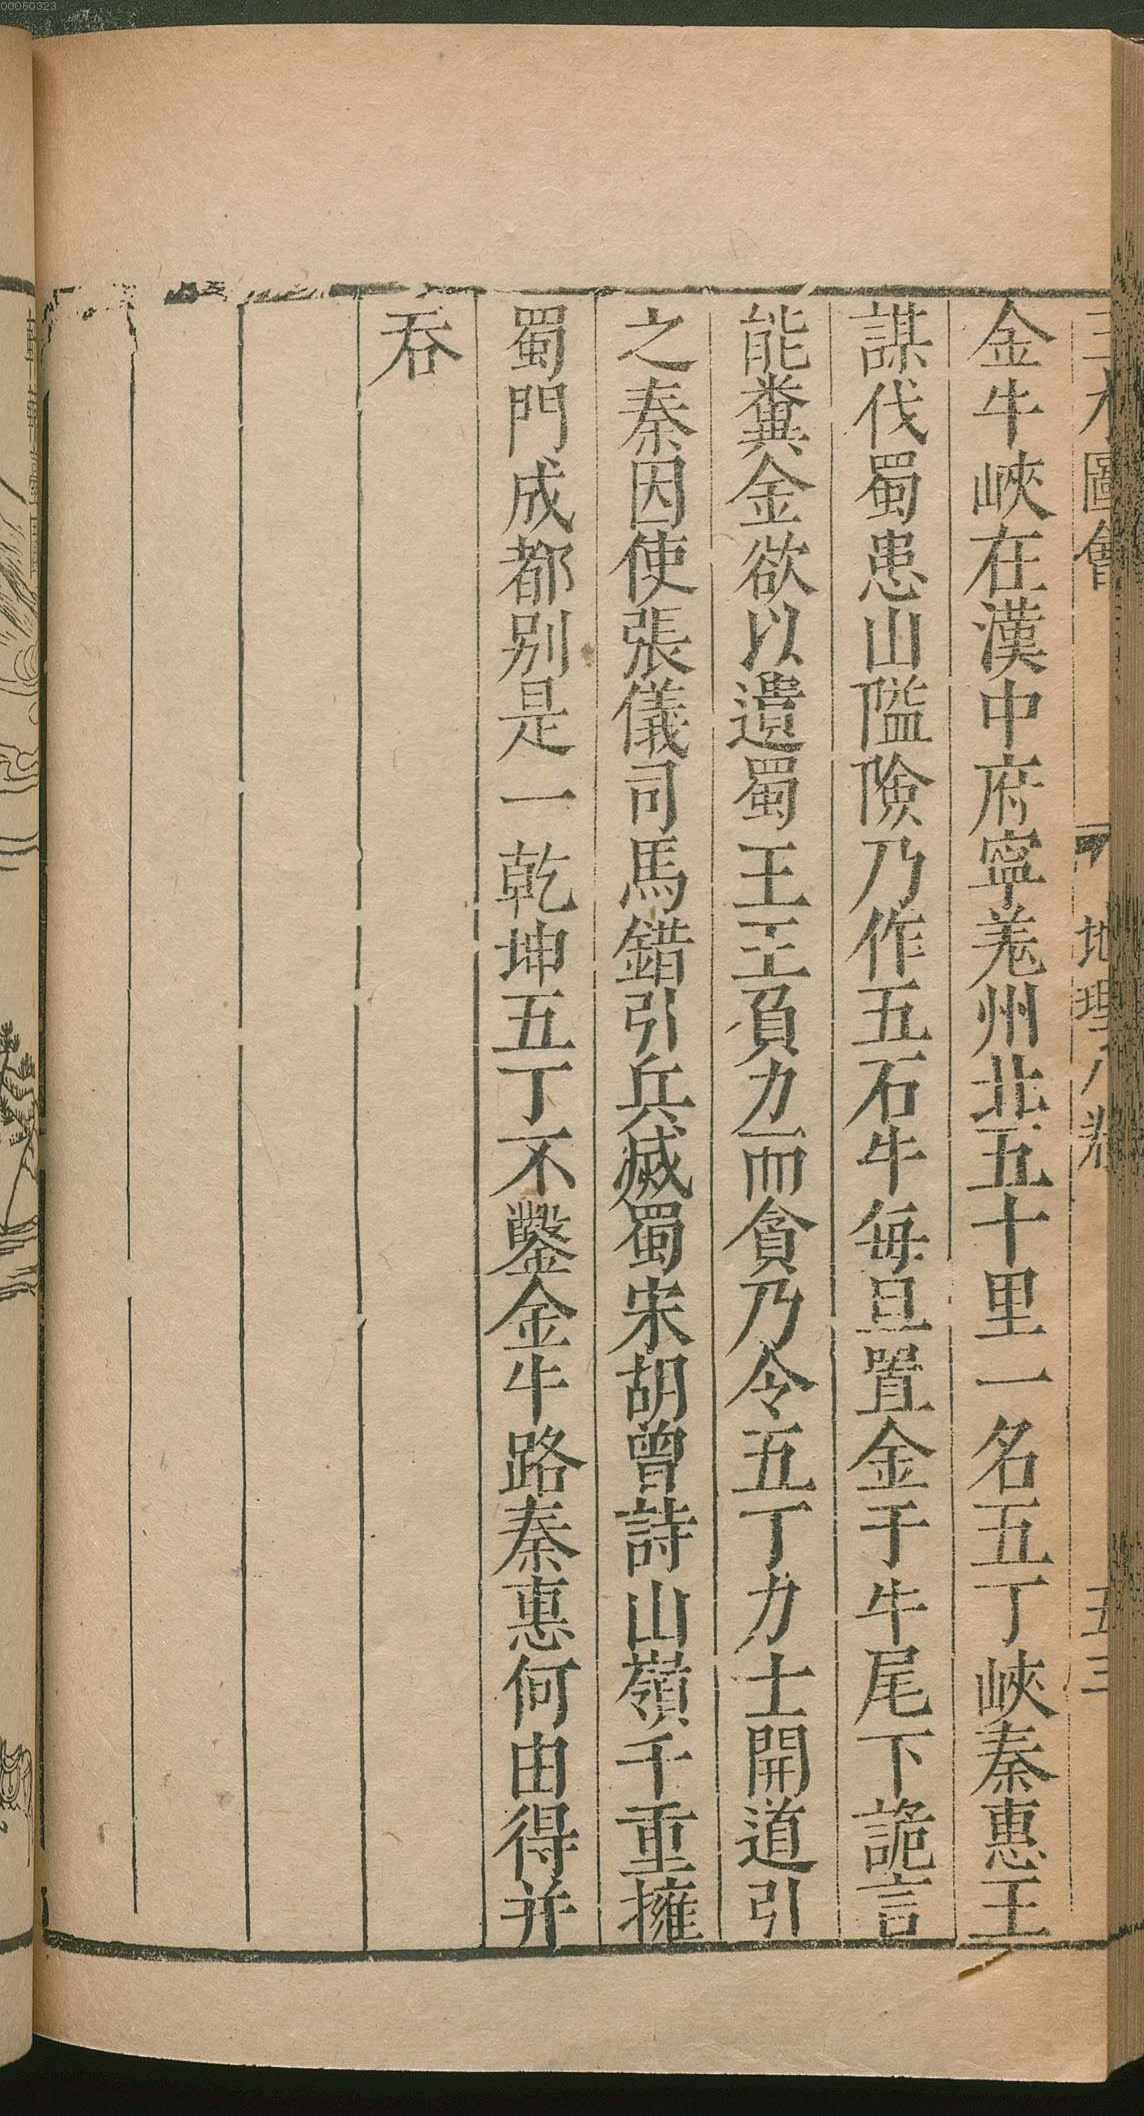 00060323
三才圖會 地理八卷 五三
金牛峽在漢中府寧羗州北五十里一名五丁峽秦惠王
謀伐蜀患山隘険乃作五石牛每旦置金于牛尾下詭言
能糞金欲以遺蜀王王負力而貪乃令五丁力士開道引
之秦因使張儀司馬錯引兵滅蜀宋胡曾詩山嶺千重擁
蜀門成都别是一乾坤五丁不鑿金牛路秦惠何由得并
吞